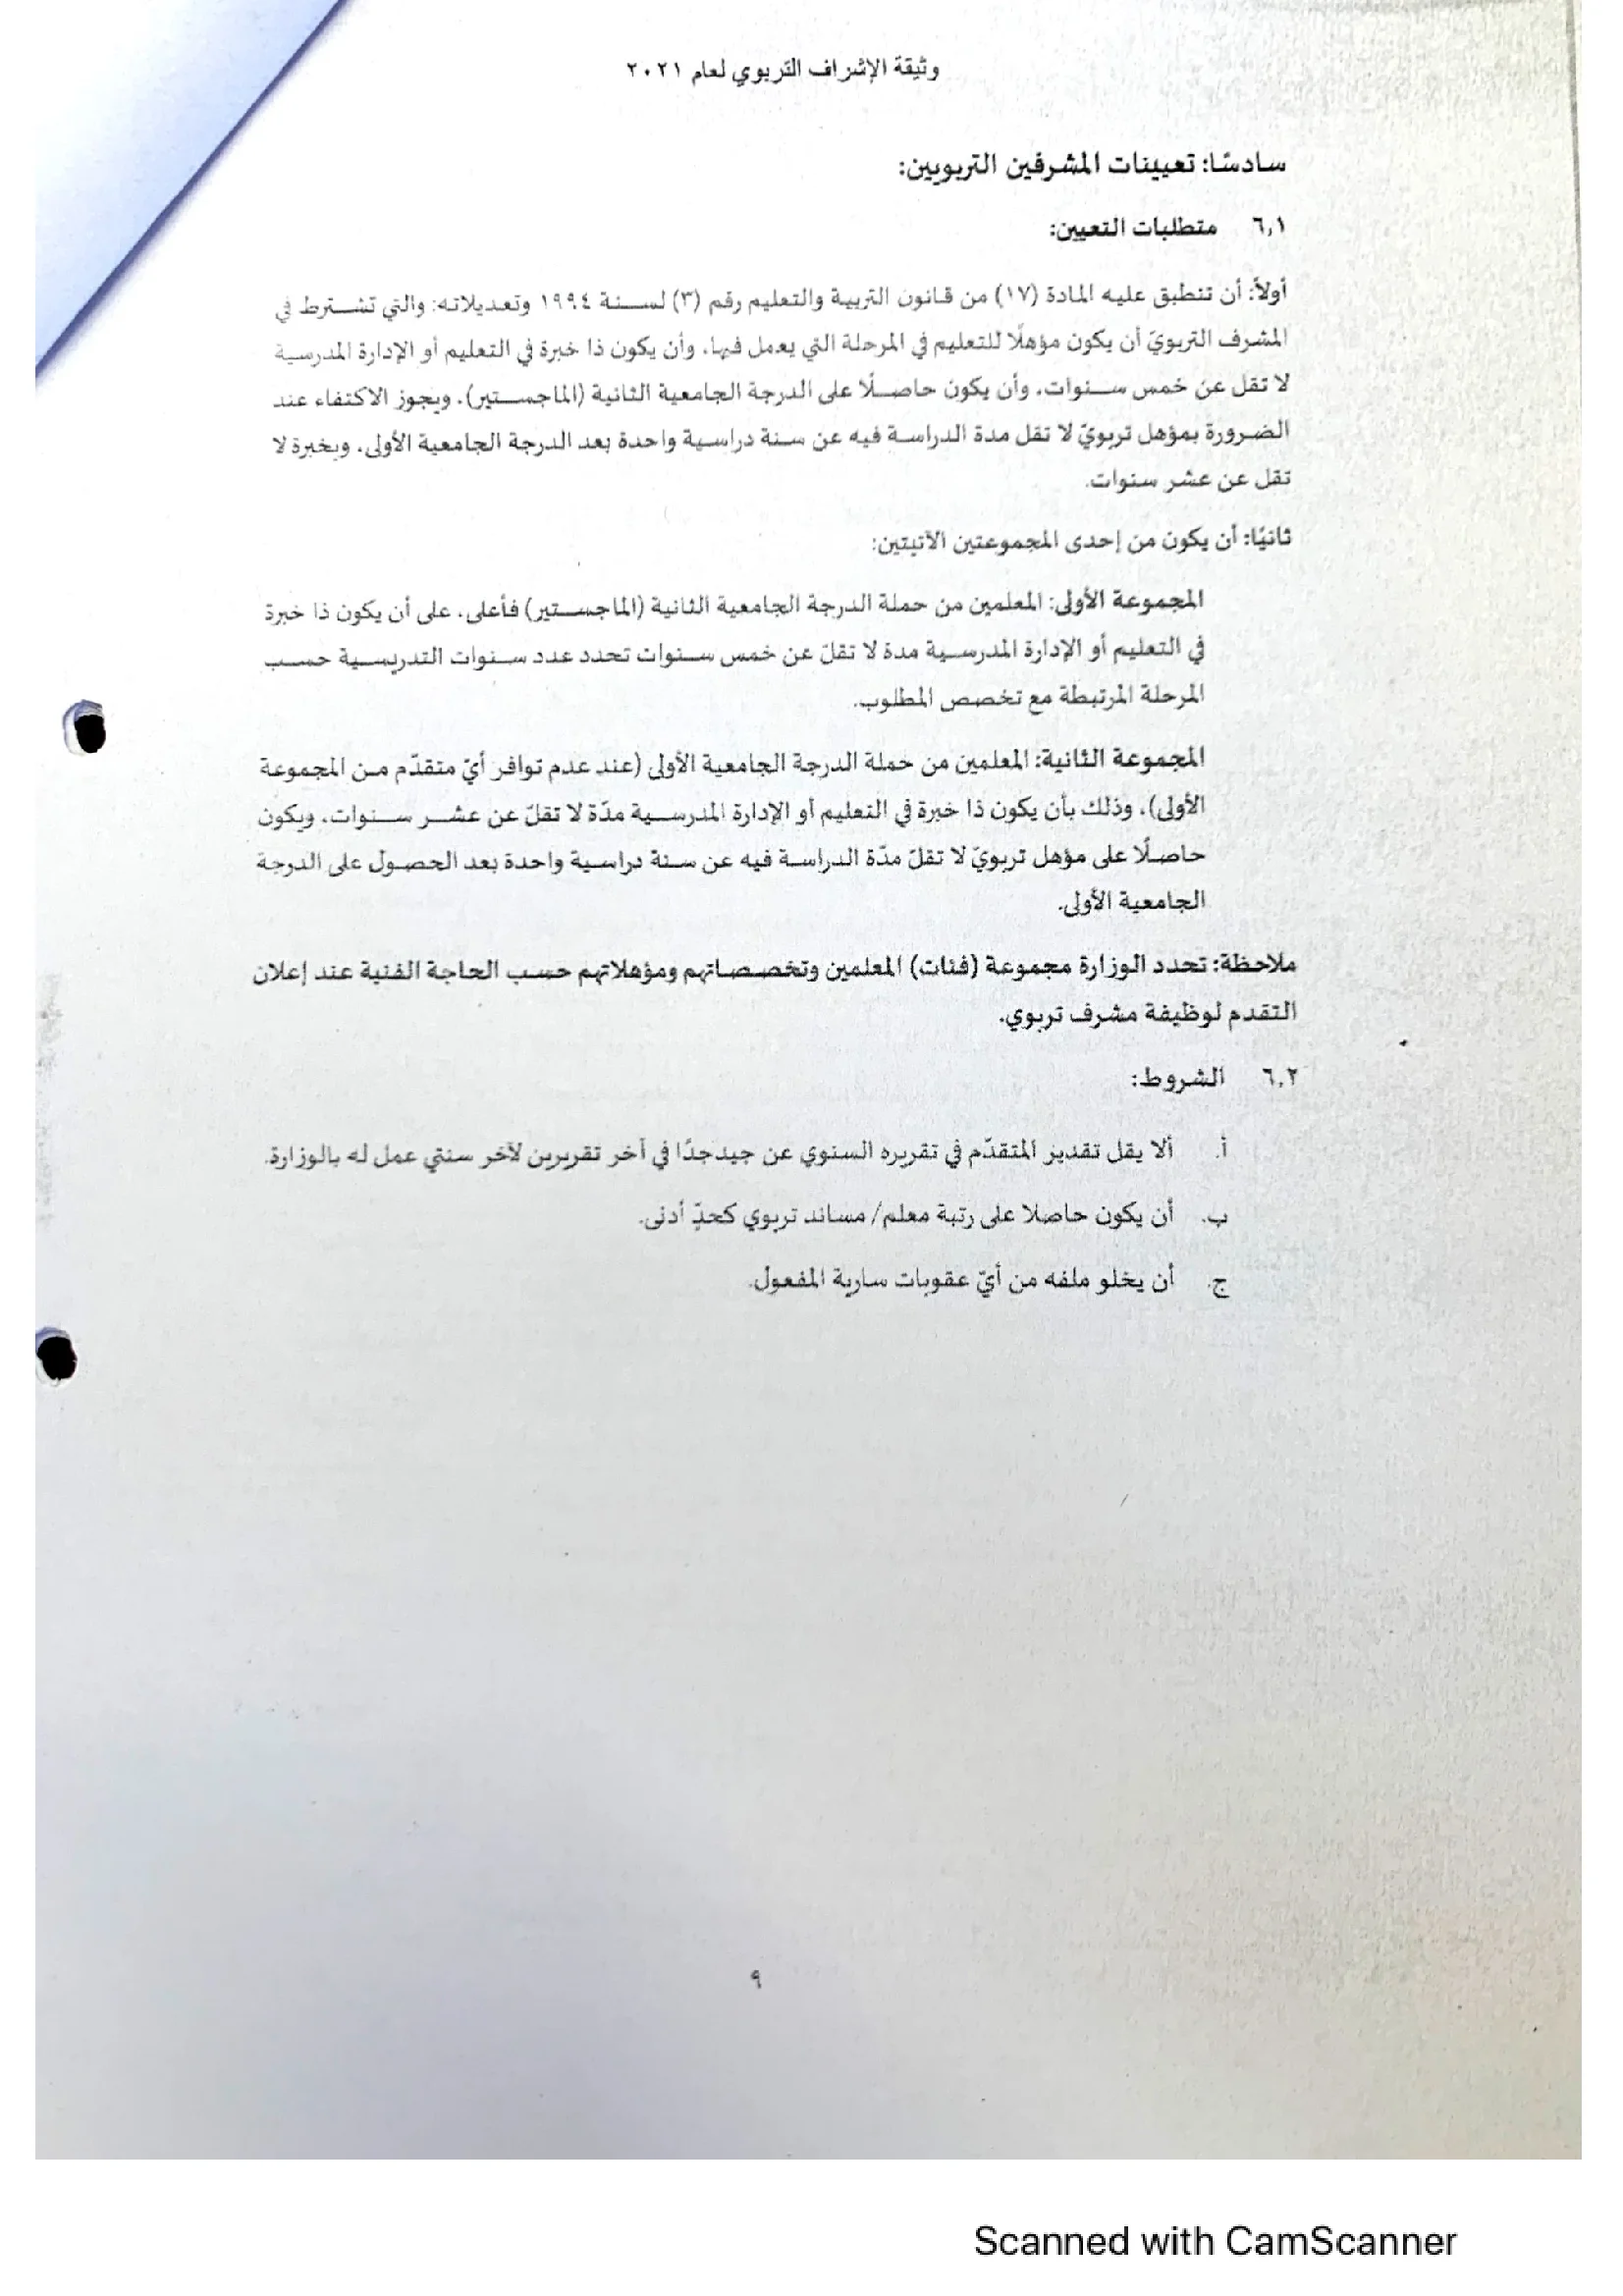 وثيقة الإشراف التربوي لعام ٢٠٢١
سادسًا: تعيينات المشرفين التربويين:
٦,١ متطلبات التعيين:
أولاً: أن تنطبق عليه المادة (١٧) من قانون التربية والتعليم رقم (٣) لسنة ١٩٩٤ وتعديلاته: والتي تشترط في
المشرف التربويّ أن يكون مؤهلًا للتعليم في المرحلة التي يعمل فيها، وأن يكون ذا خبرة في التعليم أو الإدارة المدرسية
لا تقل عن خمس سنوات، وأن يكون حاصلًا على الدرجة الجامعية الثانية (الماجستير)، ويجوز الاكتفاء عند
الضرورة بمؤهل تربويّ لا تقل مدة الدراسة فيه عن سنة دراسية واحدة بعد الدرجة الجامعية الأولى، وبخبرة لا
تقل عن عشر سنوات.
ثانيًا: أن يكون من إحدى المجموعتين الآتيتين:
المجموعة الأولى: المعلمين من حملة الدرجة الجامعية الثانية (الماجستير) فأعلى، على أن يكون ذا خبرة
في التعليم أو الإدارة المدرسية مدة لا تقلّ عن خمس سنوات تحدد عدد سنوات التدريسية حسب
المرحلة المرتبطة مع تخصص المطلوب.
المجموعة الثانية: المعلمين من حملة الدرجة الجامعية الأولى (عند عدم توافر أيّ متقدّم من المجموعة
الأولى)، وذلك بأن يكون ذا خبرة في التعليم أو الإدارة المدرسية مدّة لا تقلّ عن عشر سنوات، ويكون
حاصلًا على مؤهل تربويّ لا تقلّ مدّة الدراسة فيه عن سنة دراسية واحدة بعد الحصول على الدرجة
الجامعية الأولى.
ملاحظة: تحدد الوزارة مجموعة (فئات) المعلمين وتخصصاتهم ومؤهلاتهم حسب الحاجة الفنية عند إعلان
التقدم لوظيفة مشرف تربوي.
٦,٢ الشروط:
أ. ألا يقل تقدير المتقدّم في تقريره السنوي عن جيدجدًا في أخر تقريرين لآخر سنتي عمل له بالوزارة.
ب. أن يكون حاصلا على رتبة معلم/ مساند تربوي كحدّ أدنى.
ج. أن يخلو ملفه من أيّ عقوبات سارية المفعول.
٩
Scanned with CamScanner